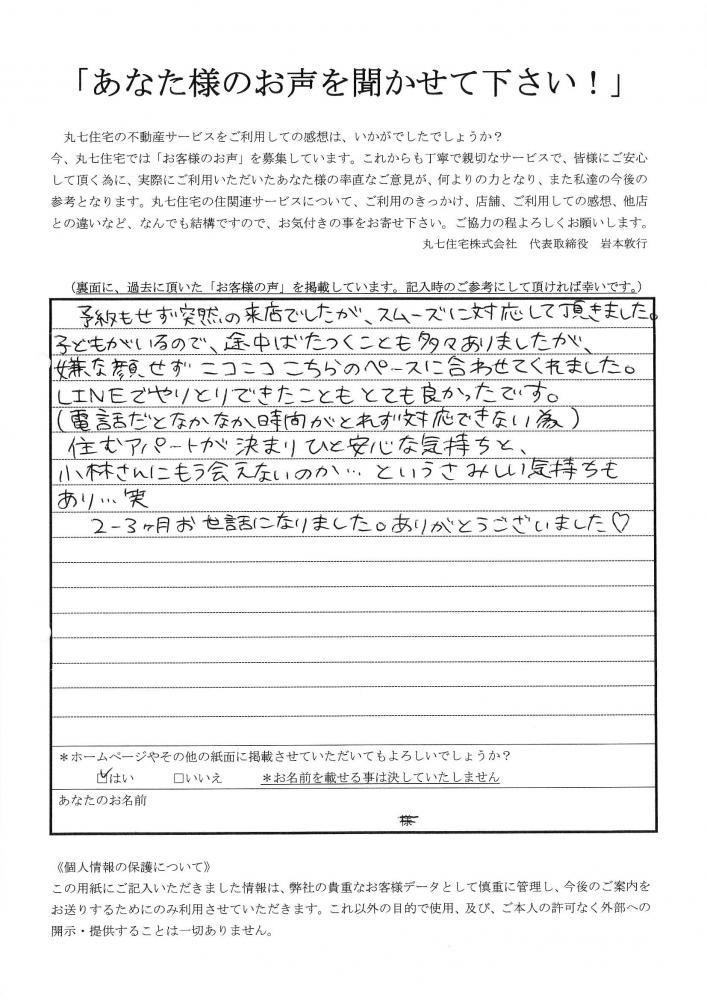 「あなた様のお声を聞かせて下さい！」
丸七住宅の不動産サービスをご利用しての感想は、いかがでしたでしょうか？
今、丸七住宅では「お客様のお声」を募集しています。これからも丁寧で親切なサービスで、皆様にご安心
して頂く為に、実際にご利用いただいたあなた様の率直なご意見が、何よりの力となり、また私達の今後の
参考となります。丸七住宅の住関連サービスについて、ご利用のきっかけ、店舗、ご利用しての感想、他店
との違いなど、なんでも結構ですので、お気付きの事をお寄せ下さい。ご協力の程よろしくお願いします。
丸七住宅株式会社　代表取締役　岩本敦行
（裏面に、過去に頂いた「お客様の声」を掲載しています。記入時のご参考にして頂ければ幸いです。）
予約もせず突然の来店でしたが、スムーズに対応して頂きました。
子どもがいるので、途中ばたつくことも多々ありましたが、
嫌な顔せず ニコニコ こちらのペースに合わせてくれました。
LINEでやりとりできたことも とても良かったです。
（電話だとなかなか時間がとれず対応できない為）
住むアパートが決まり ひと安心な気持ちと、
小林さんにもう会えないのか… というさみしい気持ちも
あり…笑
2-3ヶ月お世話になりました。ありがとうございました♡
＊ホームページやその他の紙面に掲載させていただいてもよろしいでしょうか？
☑はい　□いいえ　＊お名前を載せる事は決していたしません
あなたのお名前
様
《個人情報の保護について》
この用紙にご記入いただきました情報は、弊社の貴重なお客様データとして慎重に管理し、今後のご案内を
お送りするためにのみ利用させていただきます。これ以外の目的で使用、及び、ご本人の許可なく外部への
開示・提供することは一切ありません。